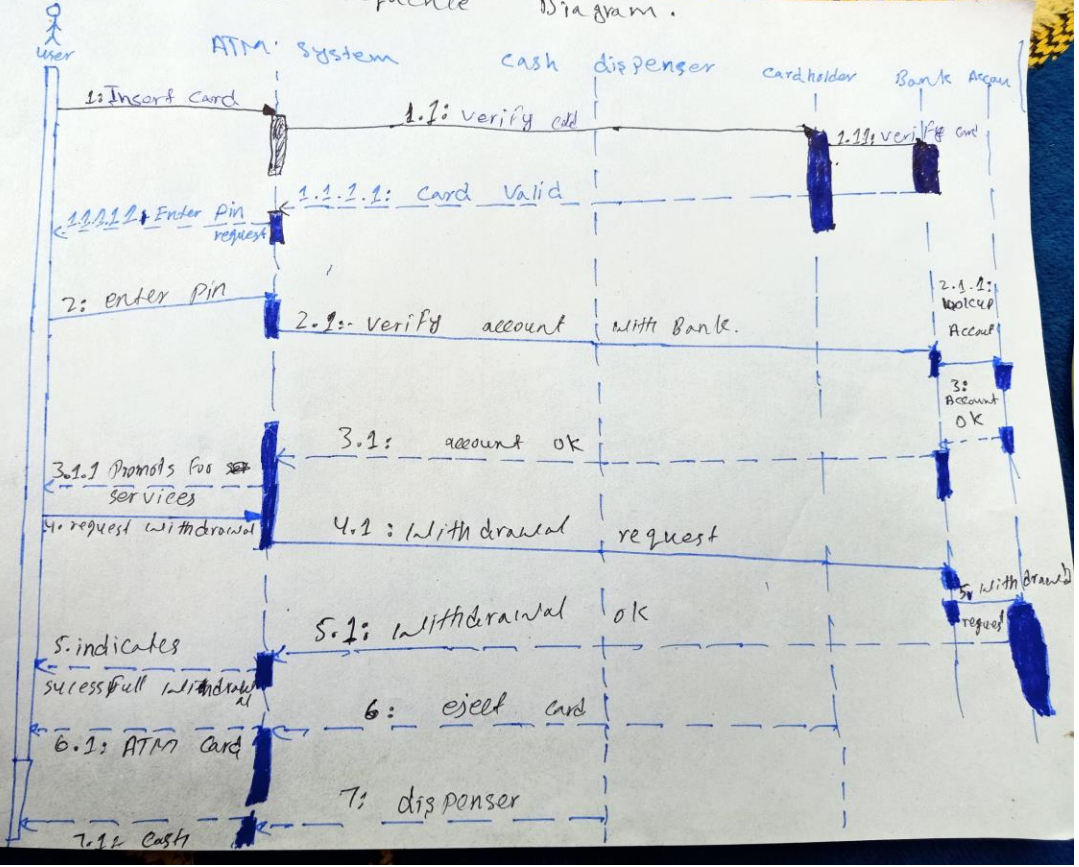 Diagram.
user
ATM: system
cash dispenser
cardholder
Bank Accou
1: Insert card
1.1: verify
1.11: verify card
1.1.1.1: card valid
Enter pin
request
2: enter pin
2.1:- verify account with Bank.
2.1.1:
lookup
Accout
3:
Account
OK
3.1: account ok
3.1.1 Promots for
services
4. request withdrawal
4.1: withdrawal request
5. withdrawl
request
5.1: withdrawal ok
5. indicates
sucessfull withdraw
al
6: eject card
6.1: ATM card
7: dispenser
7.1: cash